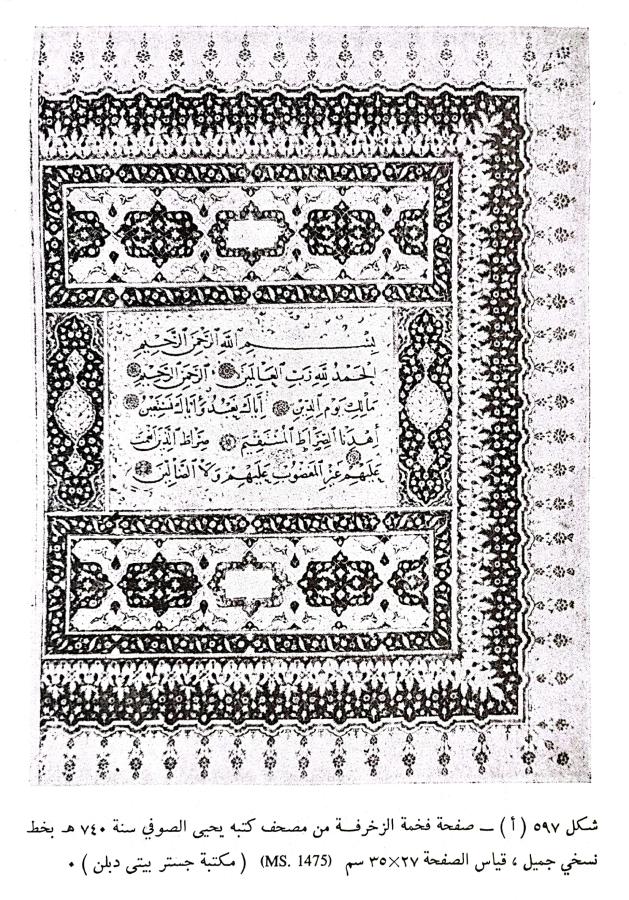 بِسْمِ ٱللَّهِ ٱلرَّحْمَٰنِ ٱلرَّحِيمِ
ٱلْحَمْدُ لِلَّهِ رَبِّ ٱلْعَالَمِينَ ٱلرَّحْمَٰنِ ٱلرَّحِيمِ
مَالِكِ يَوْمِ ٱلدِّينِ إِيَّاكَ نَعْبُدُ وَإِيَّاكَ نَسْتَعِينُ
ٱهْدِنَا ٱلصِّرَاطَ ٱلْمُسْتَقِيمَ صِرَاطَ ٱلَّذِينَ أَنْعَمْتَ
عَلَيْهِمْ غَيْرِ ٱلْمَغْضُوبِ عَلَيْهِمْ وَلَا ٱلضَّالِّينَ
شكل ٥٩٧ (أ) ــ صفحة فخمة الزخرفة من مصحف كتبه يحيى الصوفي سنة ٧٤٠ هـ بخط
نسخي جميل ، قياس الصفحة ٢٧×٣٥ سم (MS. 1475) ( مكتبة جستر بيتى دبلن ) .